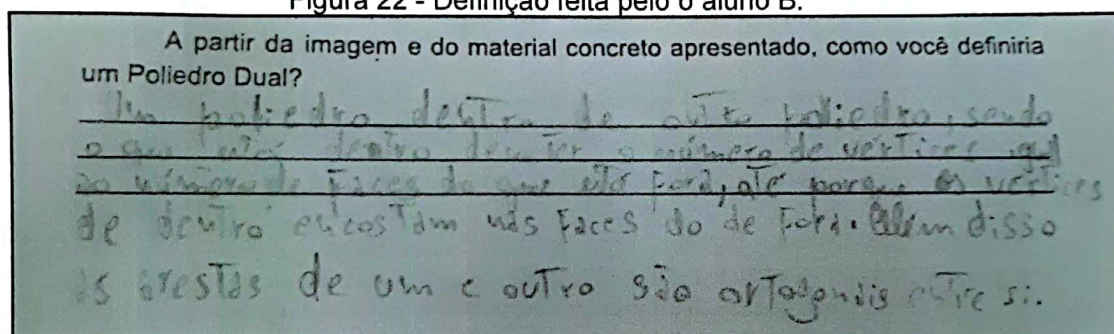 Figura 22 - Definição feita pelo o aluno B.
A partir da imagem e do material concreto apresentado, como você definiria
um Poliedro Dual?
Um poliedro dentro de outro poliedro, sendo
o que está dentro deve ter o número de vértices
ao número de faces do que está fora, até porque os vértices
de dentro encostam nas faces do de fora. Além disso
as arestas de um e outro são ortogonais entre si.